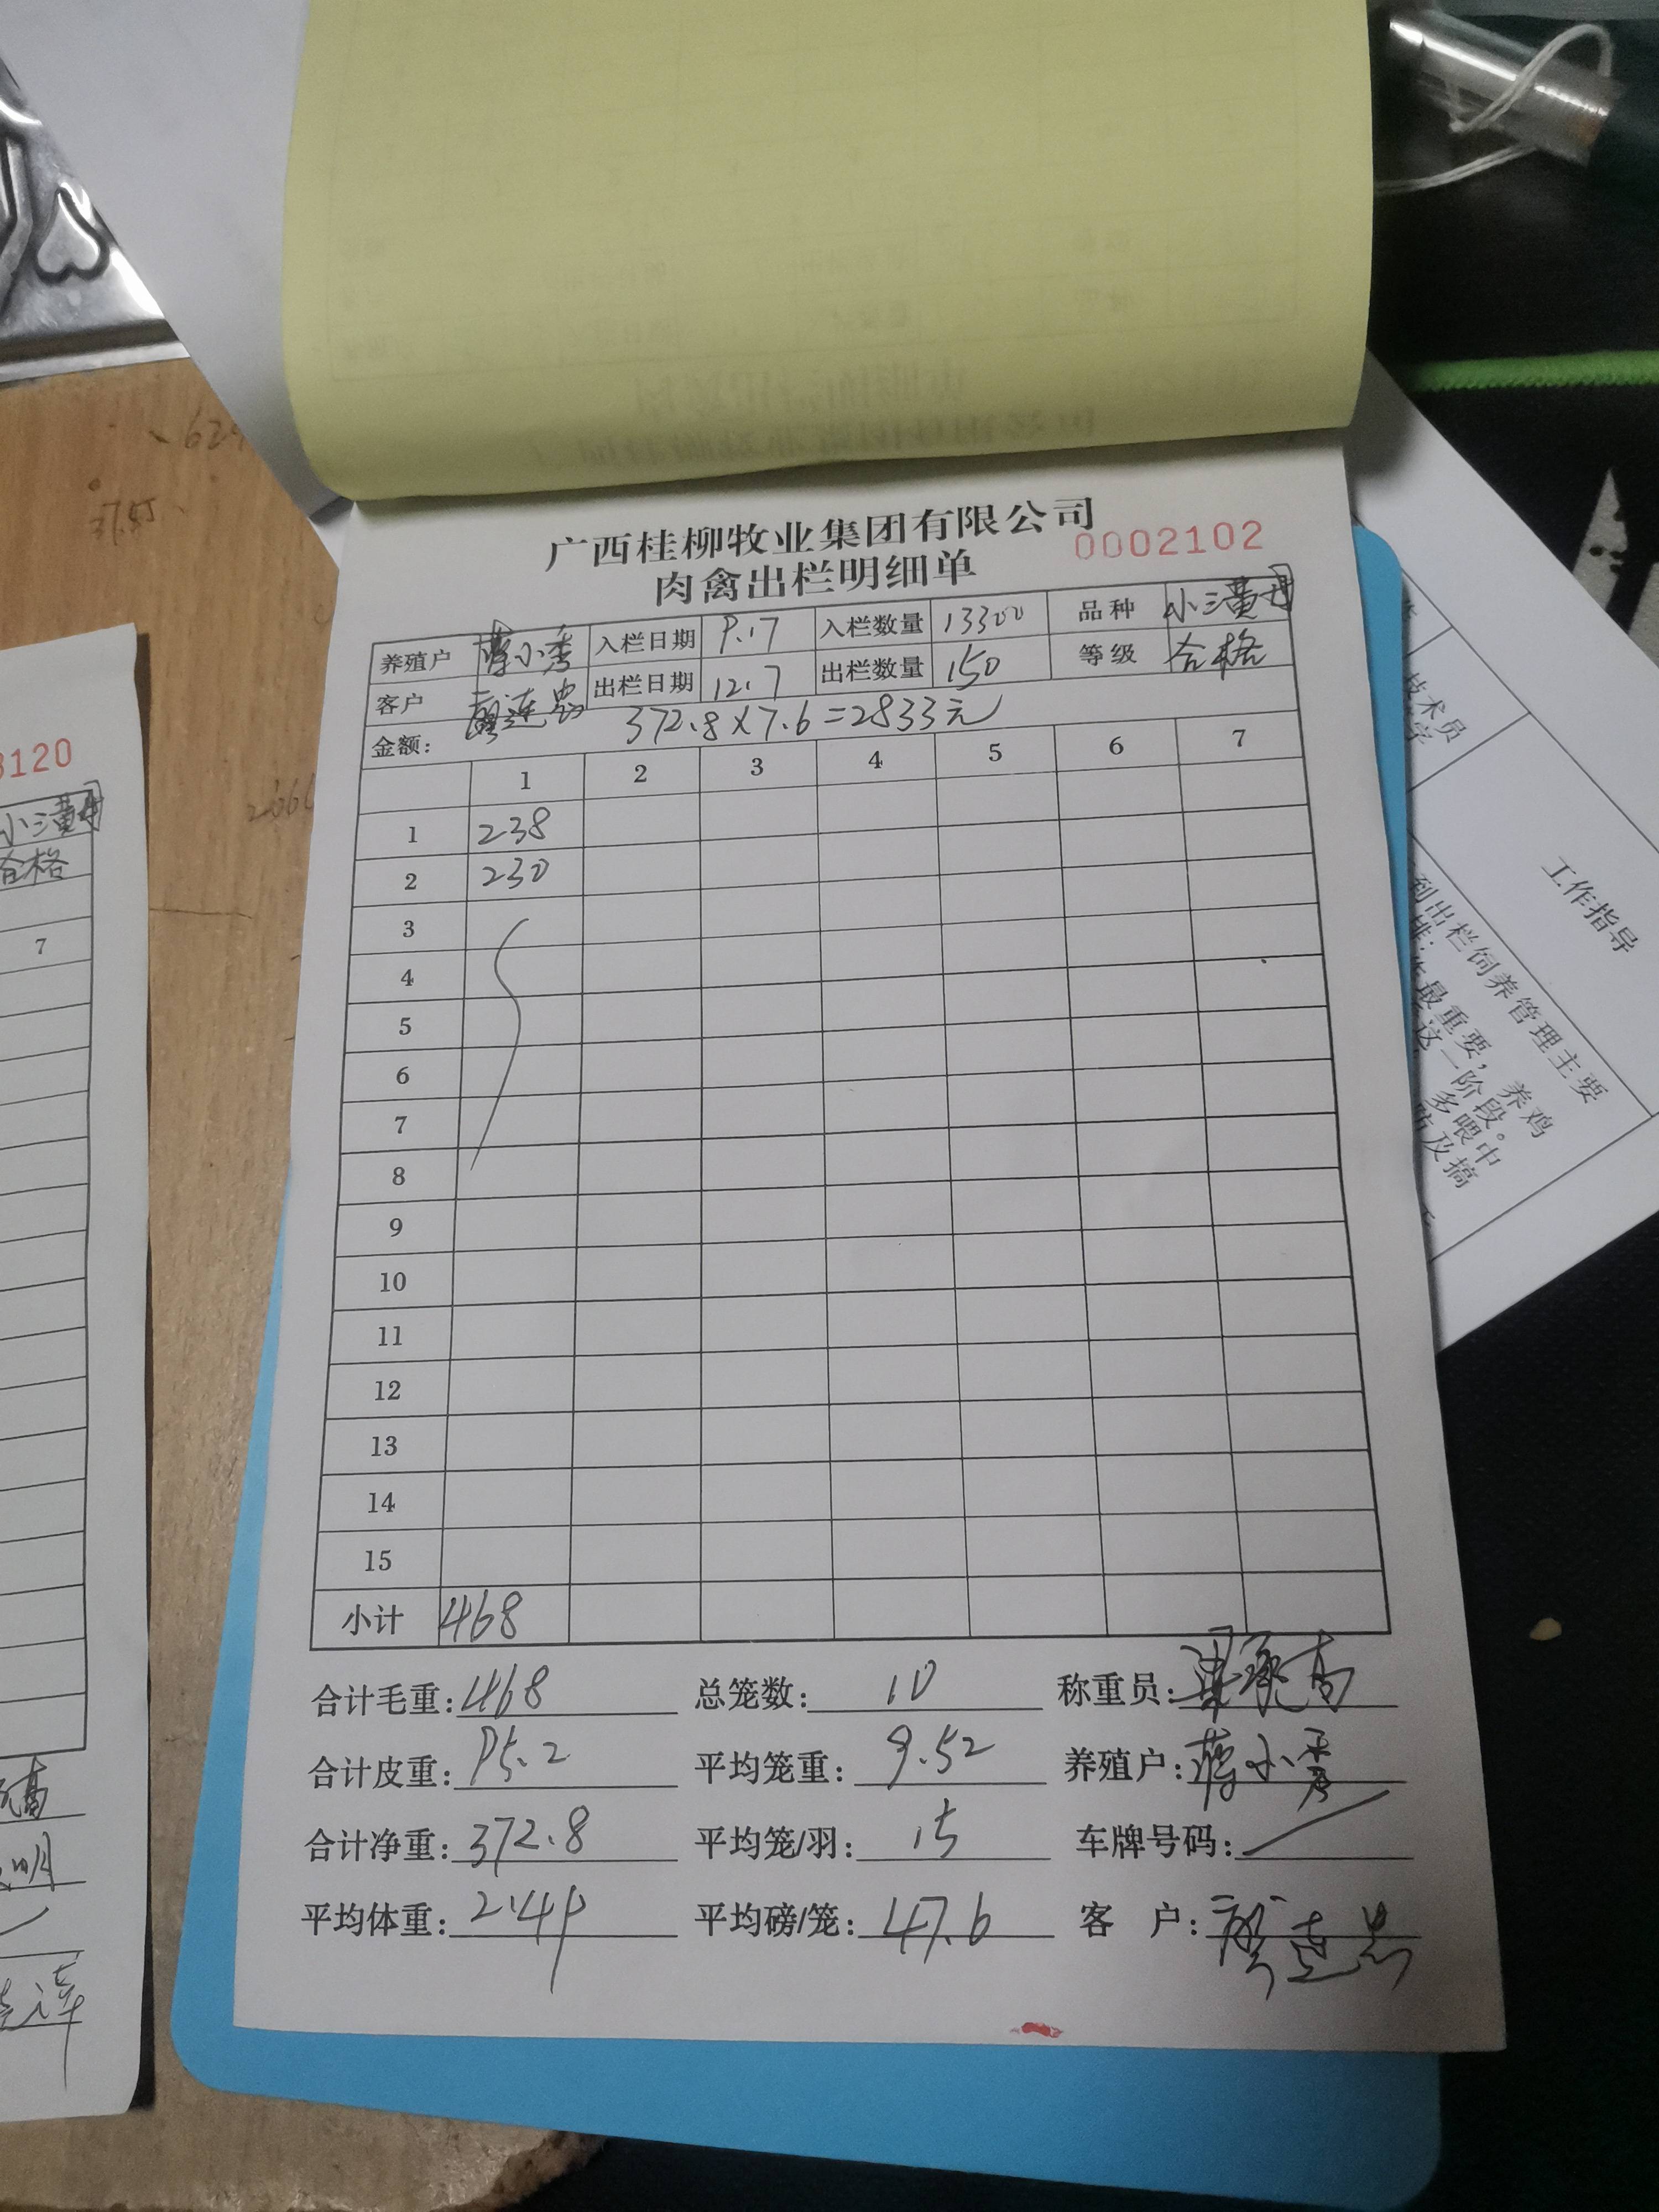 广西桂柳牧业集团有限公司
0002102
肉禽出栏明细单
养殖户 入栏日期 9.17 入栏数量 13300 品种 小三黄
客户 廖连忠 出栏日期 12.7 出栏数量 150 等级 合格
金额: 372.8×7.6=2833元
1 2 3 4 5 6 7
1 238
2 230
3
4
5
6
7
8
9
10
11
12
13
14
15
小计 468
合计毛重: 468 总笼数: 10 称重员:
合计皮重: 95.2 平均笼重: 9.52 养殖户:
合计净重: 372.8 平均笼/羽: 15 车牌号码:
平均体重: 2.49 平均磅/笼: 47.6 客 户: 廖连忠
3120
小三黄
合格
7
技术员
工作指导
到出栏饲养管理主要
最重要，养鸡
这一阶段。
多喂中
防及搞